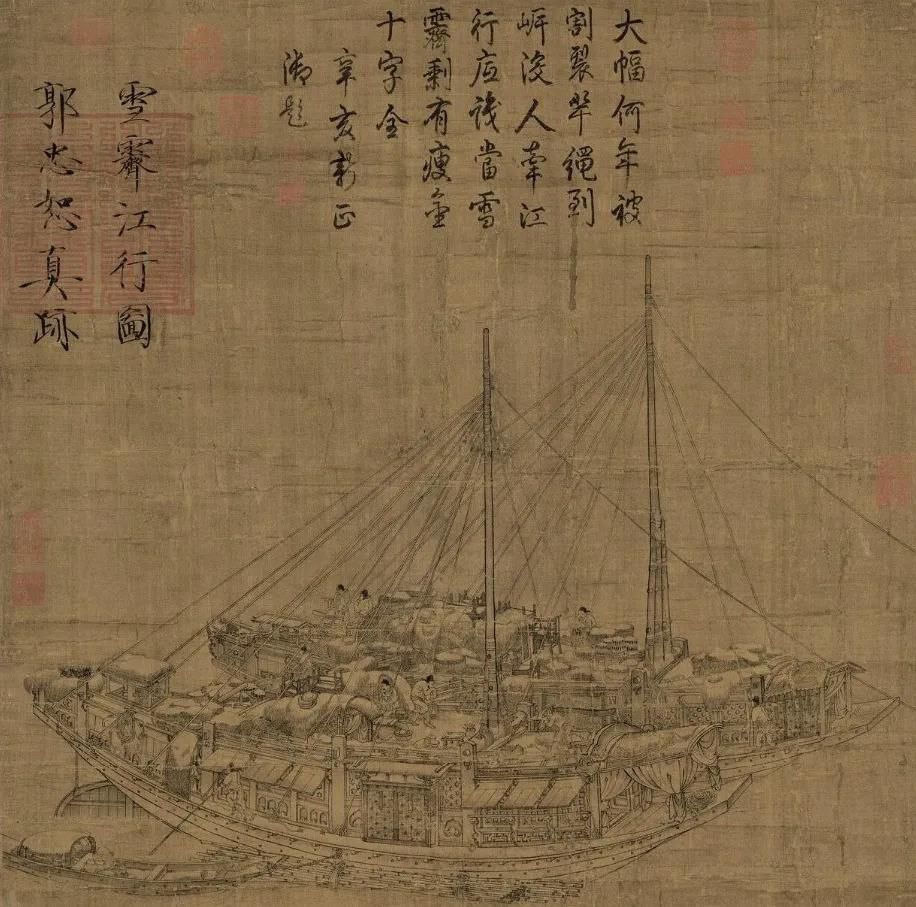 大幅何年被
割裂繩到
岸沒人牽江
行應識當雪
霽剩有瘦金
十字全
辛亥新正
御題
雪霽江行圖
郭忠恕真跡